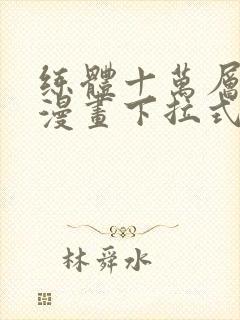 练體十萬層
漫畫下拉式
林舜水